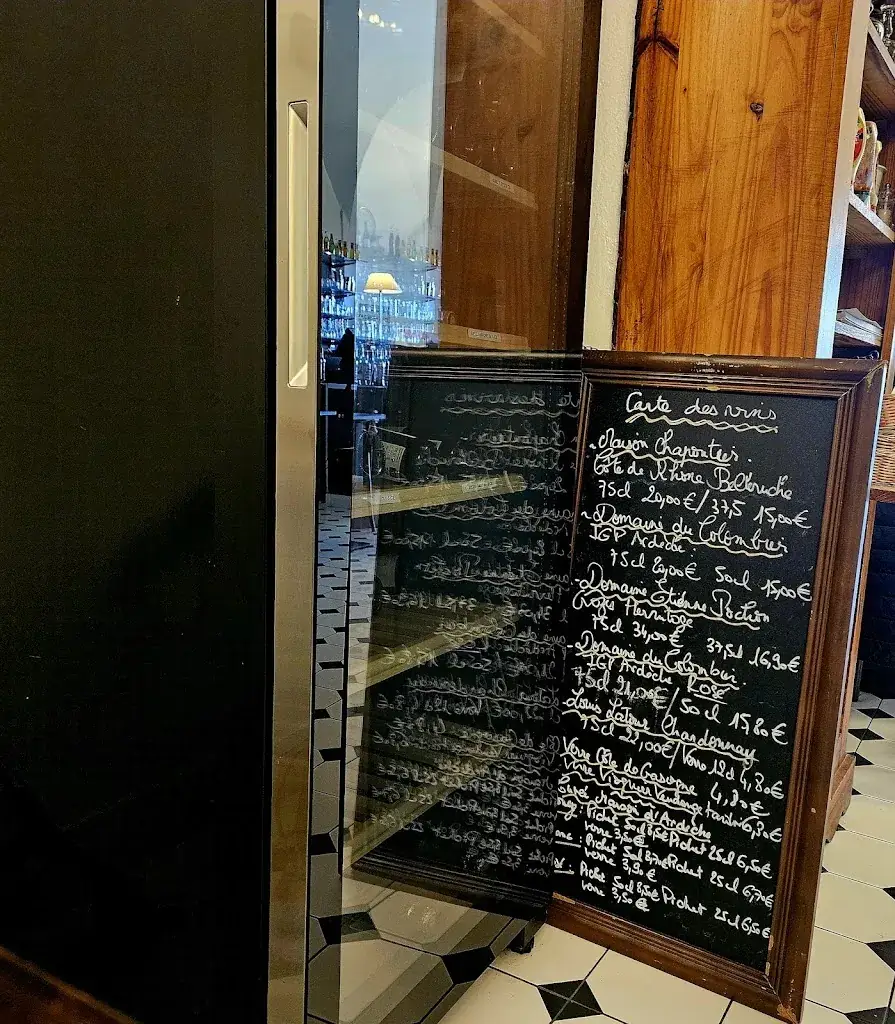 Carte des vins
- Maison Chapoutier.
Côte de Rhône Belleruche
75cl 20,00€/37,5 15,00€
- Domaine du Colombier
IGP Ardèche:
75cl 20,00€ 50cl 15,00€
- Domaine Étienne Pochon
Crozes Hermitage
75cl 34,00€ 37,5cl 16,90€
- Domaine du Colombier.
IGP Ardèche Rosé
75cl 21,00€/50cl 15,80€
- Louis Latour Chardonnay
75cl 27,00€/Verre 12cl 4,80€
Verre Côte de Gascogne 4,80€
Verre Viognier Vendange tardive 6,80€
d'Ardèche
Pichet 50cl 8,5€ Pichet 25cl 6,50€
verre 3,50€
Pichet 50cl 8,70€ Pichet 25cl 6,70€
verre 3,90€
Pichet 50cl 8,50€ Pichet 25cl 6,50€
verre 3,50€